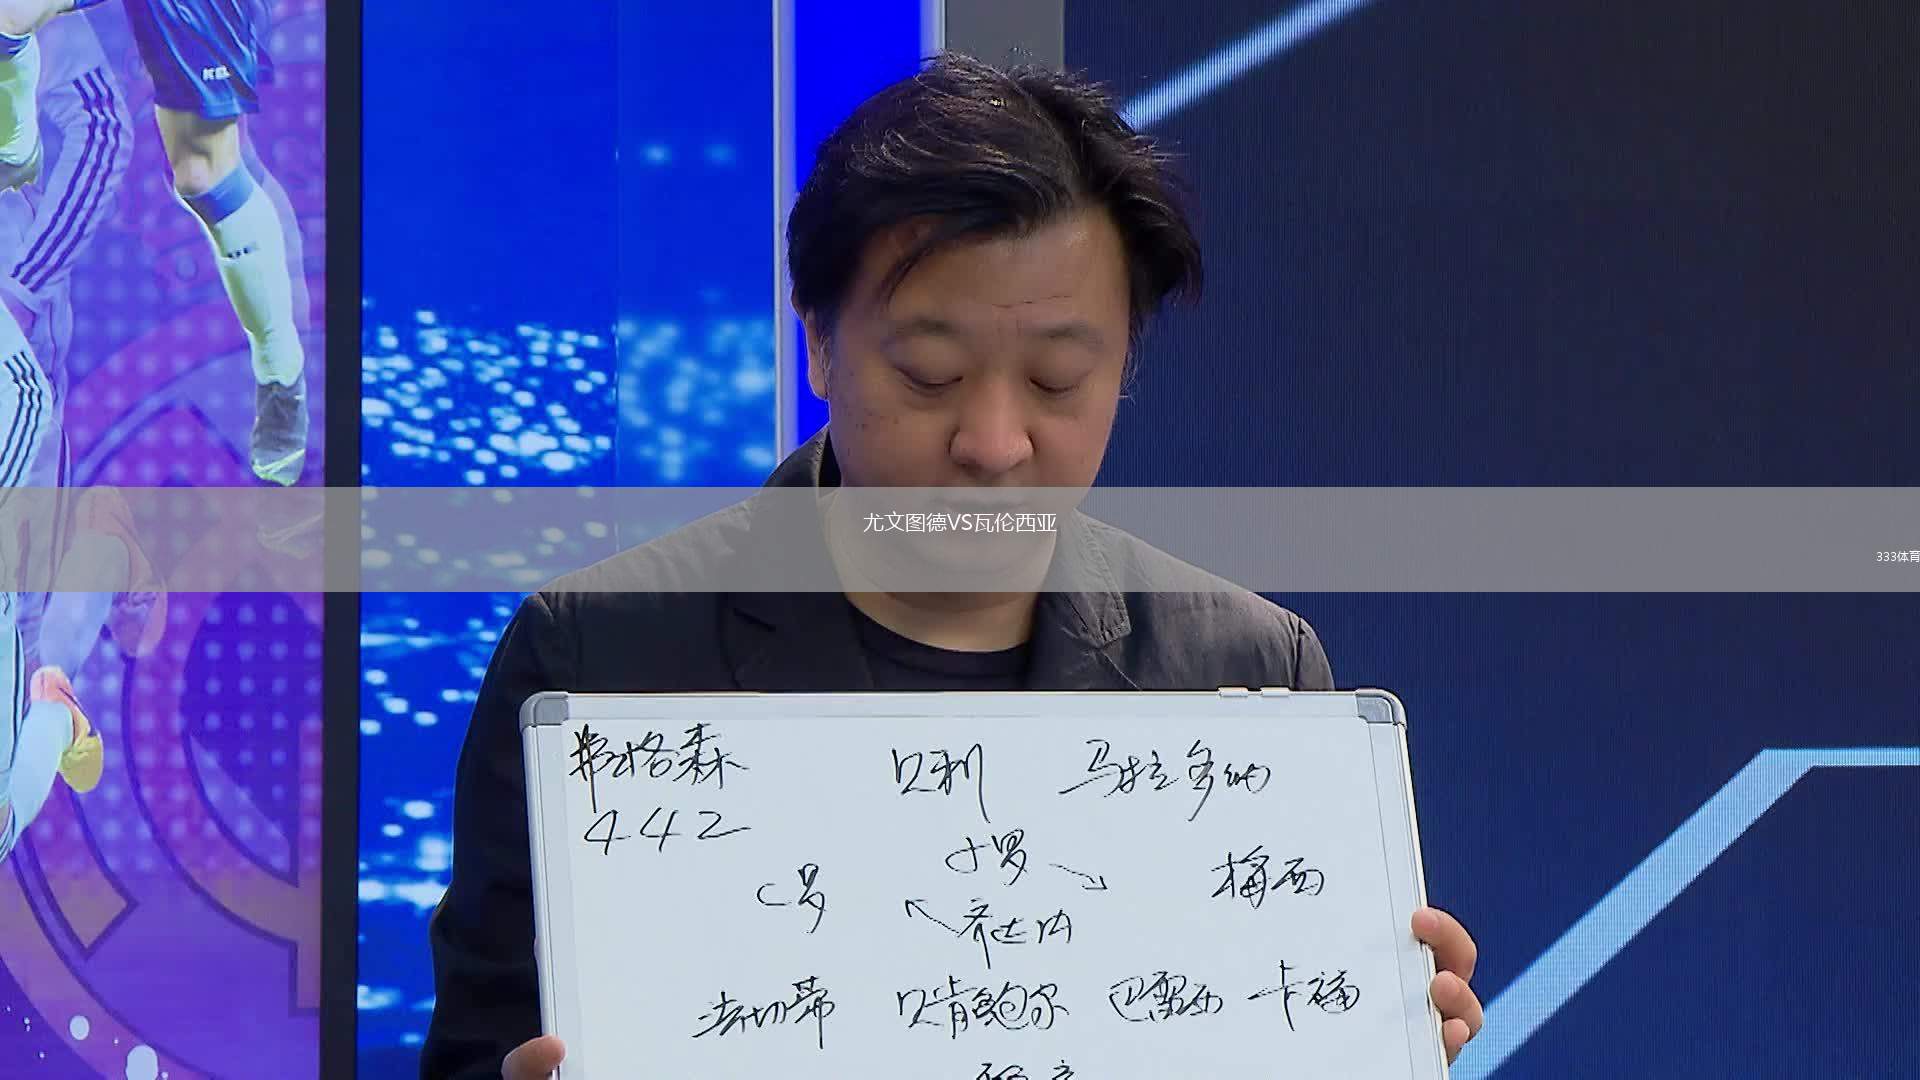 尤文图德VS瓦伦西亚
333体育
弗格森 贝利 马拉多纳
442
小罗
C罗 梅西
齐达内
法切蒂 贝肯鲍尔 巴雷西 卡福